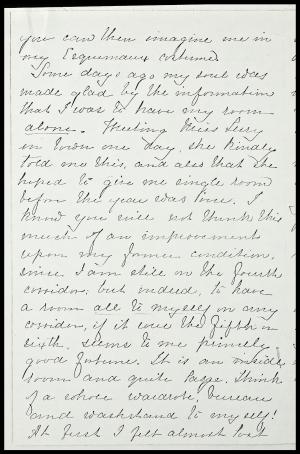 you can then imagine me in
my Esquimaux costume.
Some days ago my soul was
made glad by the information
that I was to have my room
alone. Meeting Miss
in town one day, she kindly
told me this, and also that she
hoped to give me single room
before the year was done. I
know you will not think this
much of an improvement
upon my former condition,
since I am still on the fourth
corridor; but indeed, to have
a room all to myself on any
corridor, if it were the fifth or
sixth, seems to me princely
good fortune. It is an inside
room and quite large. Think
of a whole wardrobe, bureau
and washstand to myself!
At first I felt almost lost